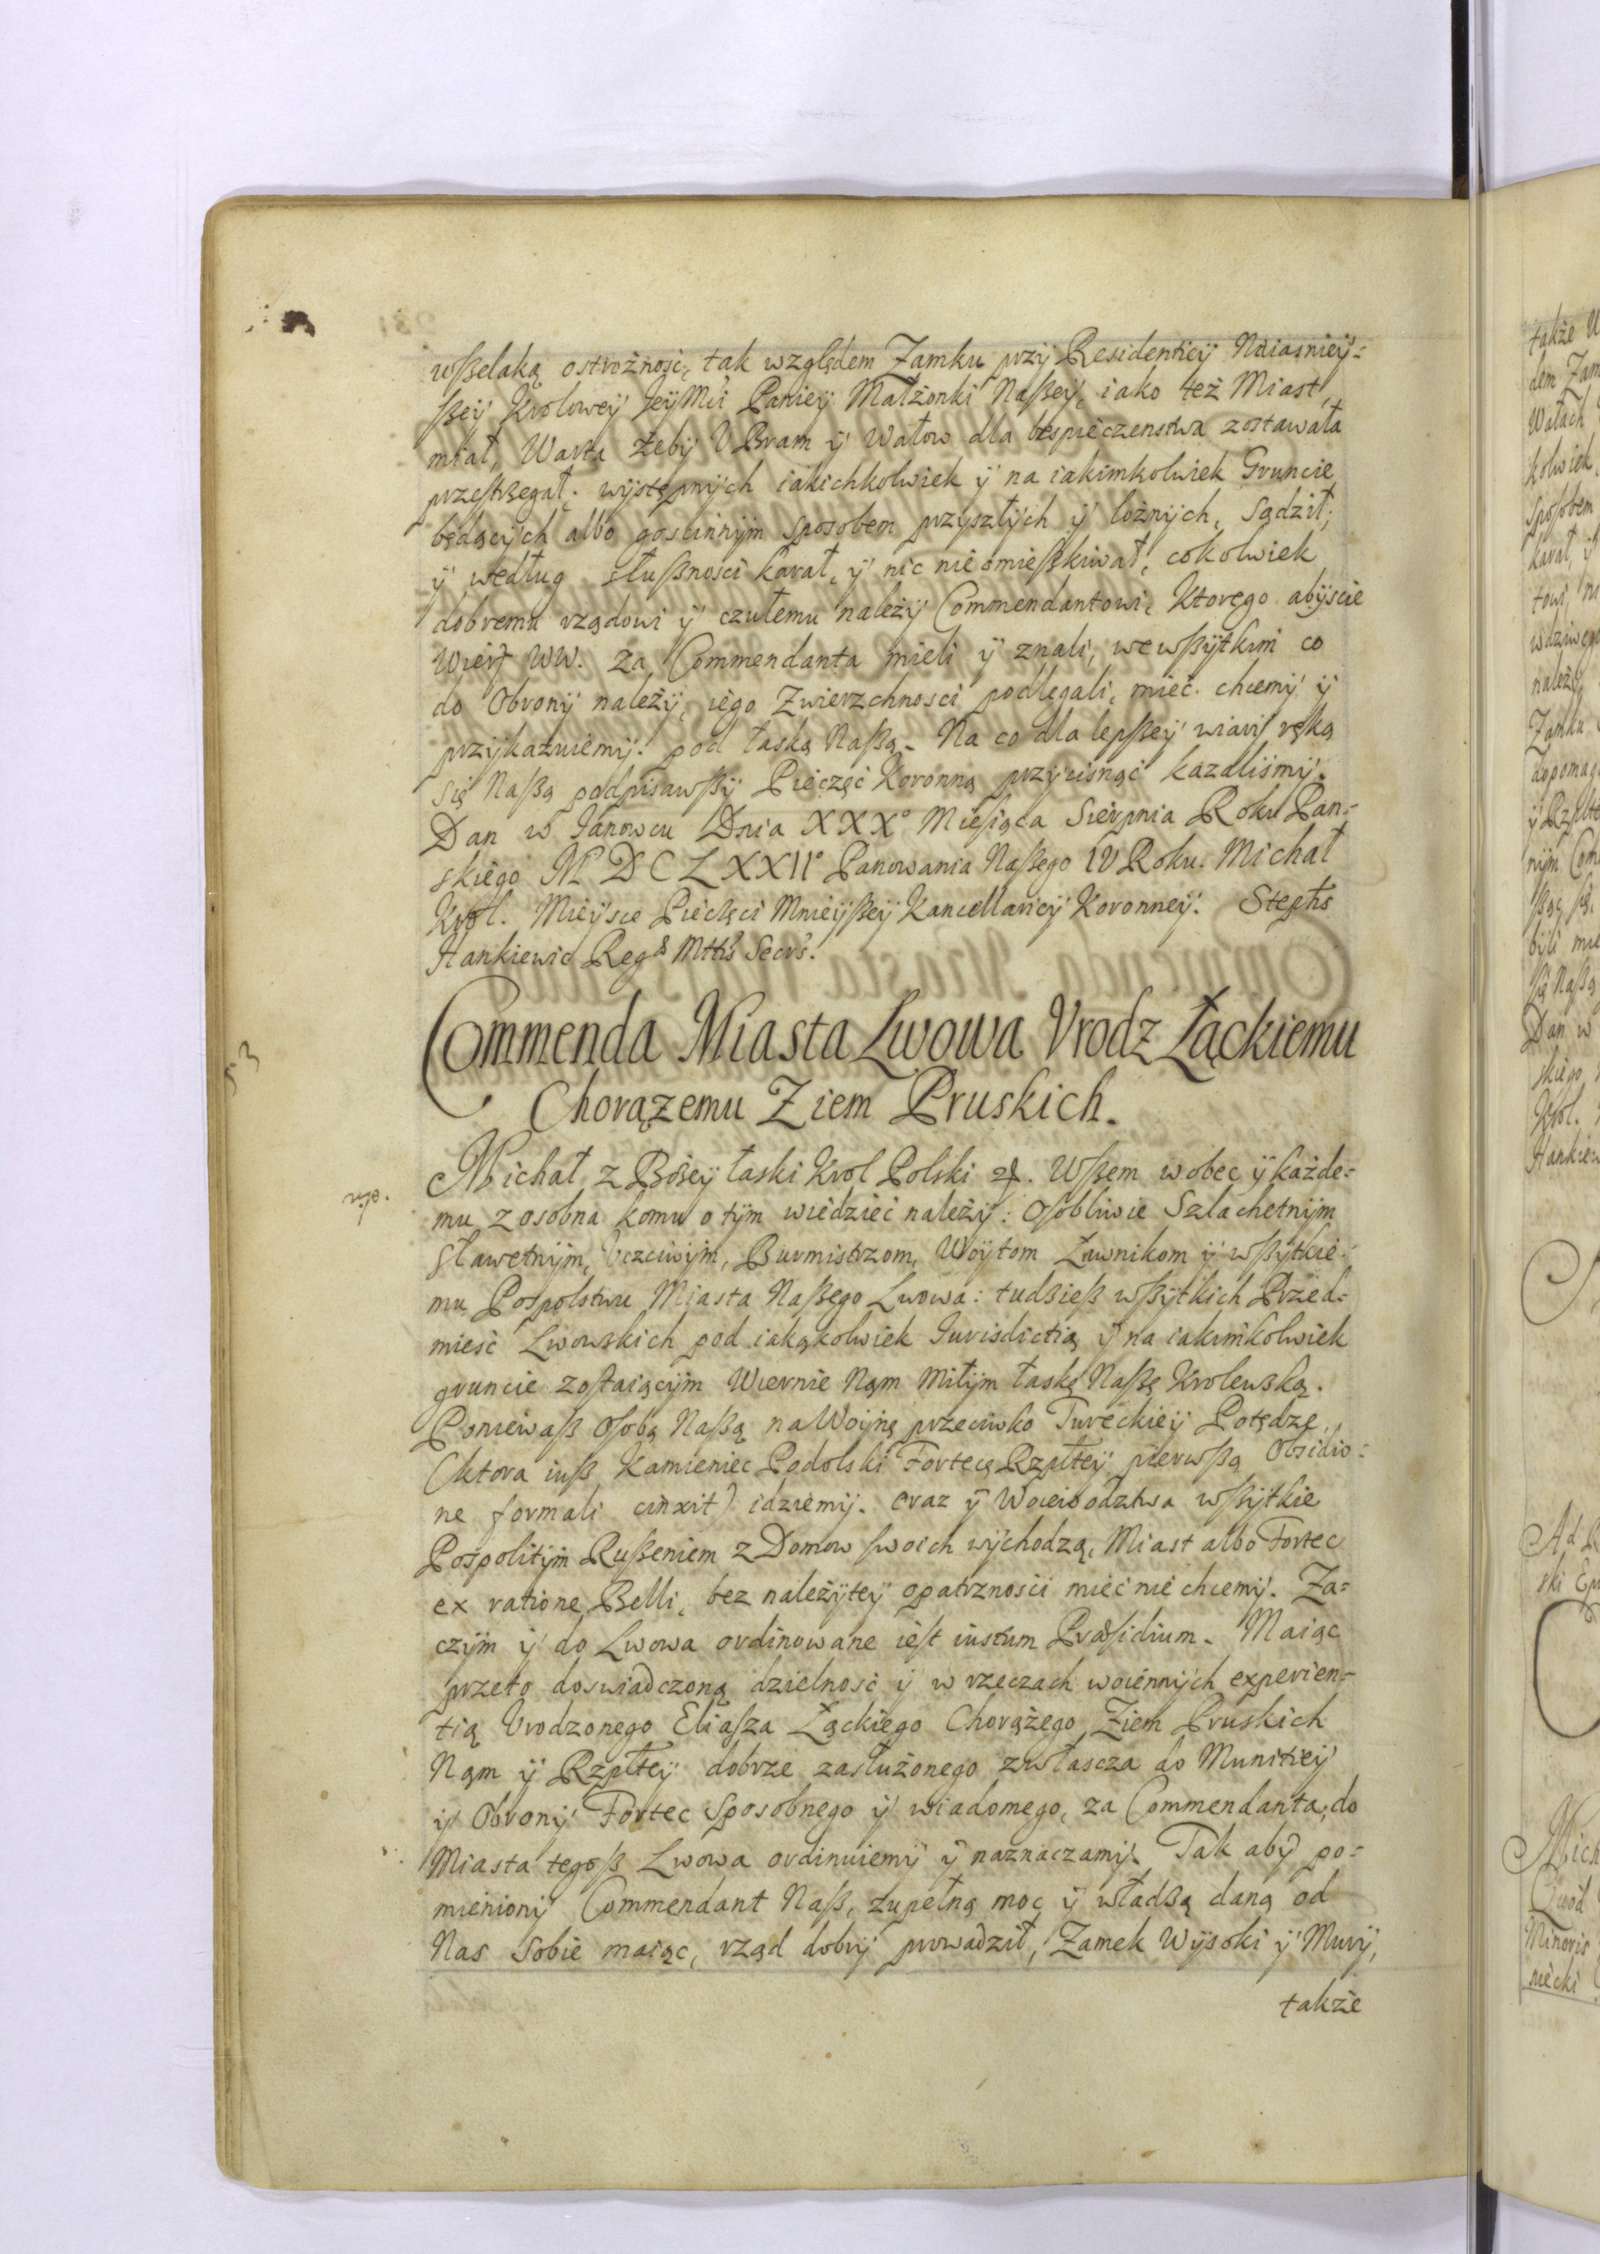 wßelaką ostrożność, tak względem Zamku przy Residentiey Naiasniey-
ßey Krolowey JeyMci Paniey Małżonki Naßey, iako też Miast,
miał, Warta żeby V Bram ÿ Wałow dla bespieczenstwa zostawała
przestrzegał. występnych iakichkolwiek ÿ na iakimkolwiek Gruncie
będących albo goscinnym sposobem przyszłych ÿ lożnych, Sądził;
ÿ według słußnosci karał, ÿ nic nieomießkiwał, cokolwiek
dobremu rządowi ÿ czułemu należy Commendantowi, Ktorego abyscie
Wier WW. za Commendanta mieli ÿ znali, wewßytkim co
do Obrony należy, iego Zwierzchnosci podlegali, mieć chcemy ÿ
przykazuiemy. pod łaską Naßą. Na co dla lepßey wiary ręką
się Naßą podpisawßy Pieczęć Koronną przycisnąć kazaliśmy.
Dan w Janowcu Dnia XXX° Miesiąca Sierpnia Roku Pan-
skiego M D C L XXII° Panowania Naßego IV Roku. Michał
Krol. Mieysce Pieczęci Mnieyßey Kancellariey Koronney. Stephs
Hankiewic Regs Mttis Secrs.
Commenda Miasta Lwowa Vrodz Łąckiemu
Chorązemu Ziem Pruskich.
53
Michał z Bożey łaski Krol Polski. Wßem wobec ÿ każde-
mu zosobna komu o tym wiedzieć należy: Osobliwie Szlachetnym
Sławetnym, Vczciwym, Burmistrzom, Woytom Ławnikom ÿ wßytkie-
mu Pospolstwu Miasta Naßego Lwowa: tudzieß wßytkich Przed-
mieść Lwowskich pod iakąkolwiek Iurisdictią ÿ na iakimkolwiek
gruncie zostaiącym Wiernie Nąm Miłym łaskę Naßę Krolewską.
Poniewaß Osobą Naßą na Woynę przeciwko Tureckiey Potędze,
(ktora iuß Kamieniec Podolski Fortecę Rzpłtey pierwßą Obsidio-
ne formali cinxit) idziemy. oraz ÿ Woiewodztwa wßytkie
Pospolitym Rußeniem z Domow swoich wychodzą, Miast albo Fortec
ex ratione Belli, bez należytey opatrznosci mieć nie chcemy. Za-
czym ÿ do Lwowa ordinowane iest iustum Præsidium. Maiąc
przeto doswiadczoną dzielność ÿ w rzeczach woiennych experien-
tią Vrodzonego Eliasza Łąckiego Chorążego Ziem Pruskich
Nąm ÿ Rzpłtey dobrze zasłużonego zwłascza do Munitiey
ÿ Obrony Fortec sposobnego ÿ wiadomego, za Commendanta, do
Miasta tegoß Lwowa ordinuiemy ÿ naznaczamy. Tak aby po-
mieniony Commendant Naß, zupełną moc ÿ władzą daną od
Nas sobie maiąc, rząd dobry prowadził, Zamek Wysoki ÿ Mury,
także